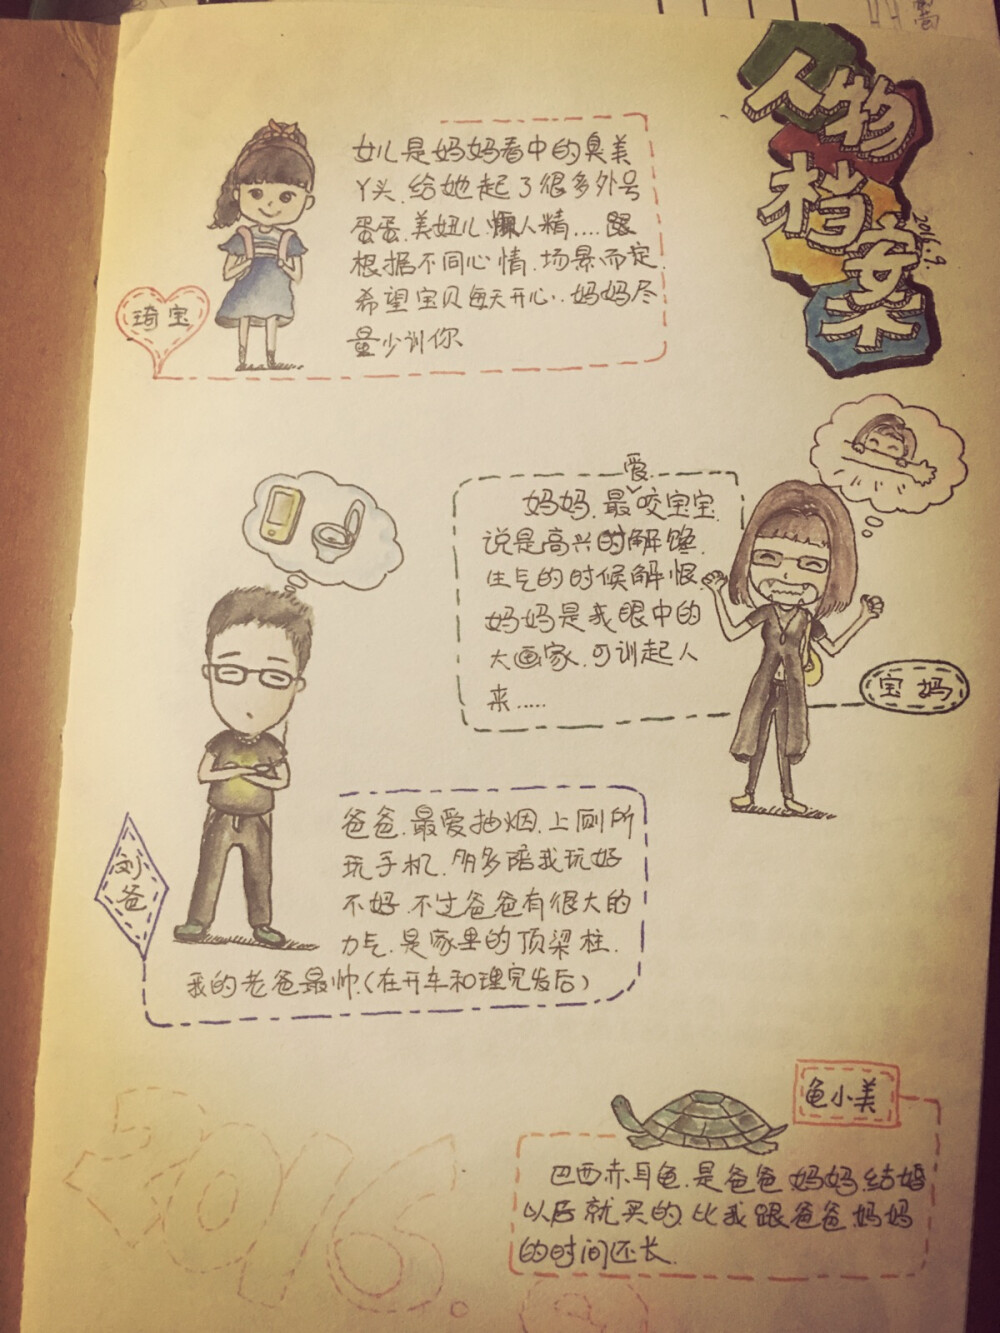 人物档案
2016.9.
女儿是妈妈看中的臭美
丫头.给她起了很多外号
蛋蛋.美妞儿.懒人精....跟
根据不同心情.场景而定.
希望宝贝每天开心..妈妈尽
量少训你
琦宝
爱
妈妈.最咬宝宝.
说是高兴的时解馋.
生气的时候解恨.
妈妈是我眼中的
大画家.可训起人
来.....
宝妈
爸爸.最爱抽烟.上厕所
玩手机.多多陪我玩好
不好.不过爸爸有很大的
力气.是家里的顶梁柱.
我的老爸最帅.(在开车和理完发后)
刘爸
龟小美
巴西赤耳龟.是爸爸妈妈.结婚
以后就买的.比我跟爸爸妈妈
的时间还长.
2016.